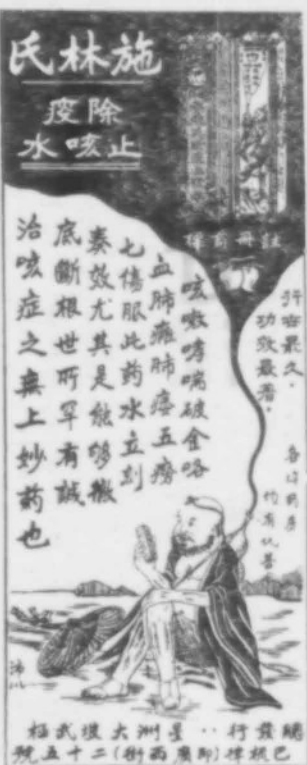 施林氏
除痰
止咳水
註冊商標
行世最久。
功效最著。
各埠药房
均有代售
咳嗽哮喘破金咯
血肺癰肺痿五癆
七傷服此药水立刻
奏效尤其是能够徹
底斷根世所罕有誠
治咳症之無上妙药也
總發行‥星洲大坡武極
巴梳律(即廣西街)二十五號